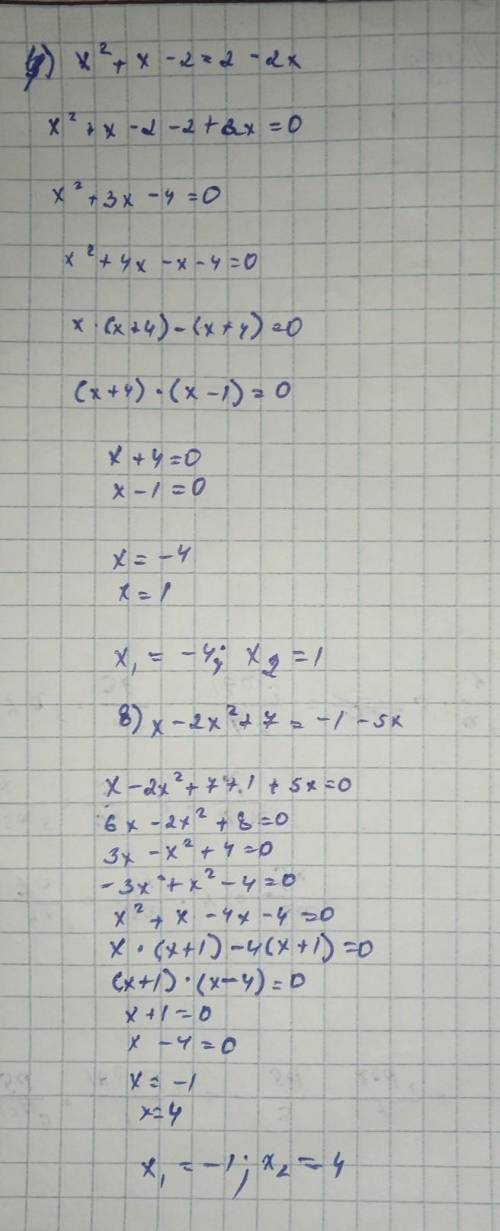 x² + x - 2 = 2 - 2x
x² + x - 2 - 2 + 2x = 0
x² + 3x - 4 = 0
x² + 4x - x - 4 = 0
x · (x+4) - (x+4) = 0
(x+4) · (x-1) = 0
x + 4 = 0
x - 1 = 0
x = -4
x = 1
x₁ = -4; x₂ = 1
8) x - 2x² + 7 = -1 - 5x
x - 2x² + 7 + 1 + 5x = 0
6x - 2x² + 8 = 0
3x - x² + 4 = 0
-3x + x² - 4 = 0
x² + x - 4x - 4 = 0
x · (x+1) - 4(x+1) = 0
(x+1) · (x-4) = 0
x + 1 = 0
x - 4 = 0
x = -1
x = 4
x₁ = -1; x₂ = 4